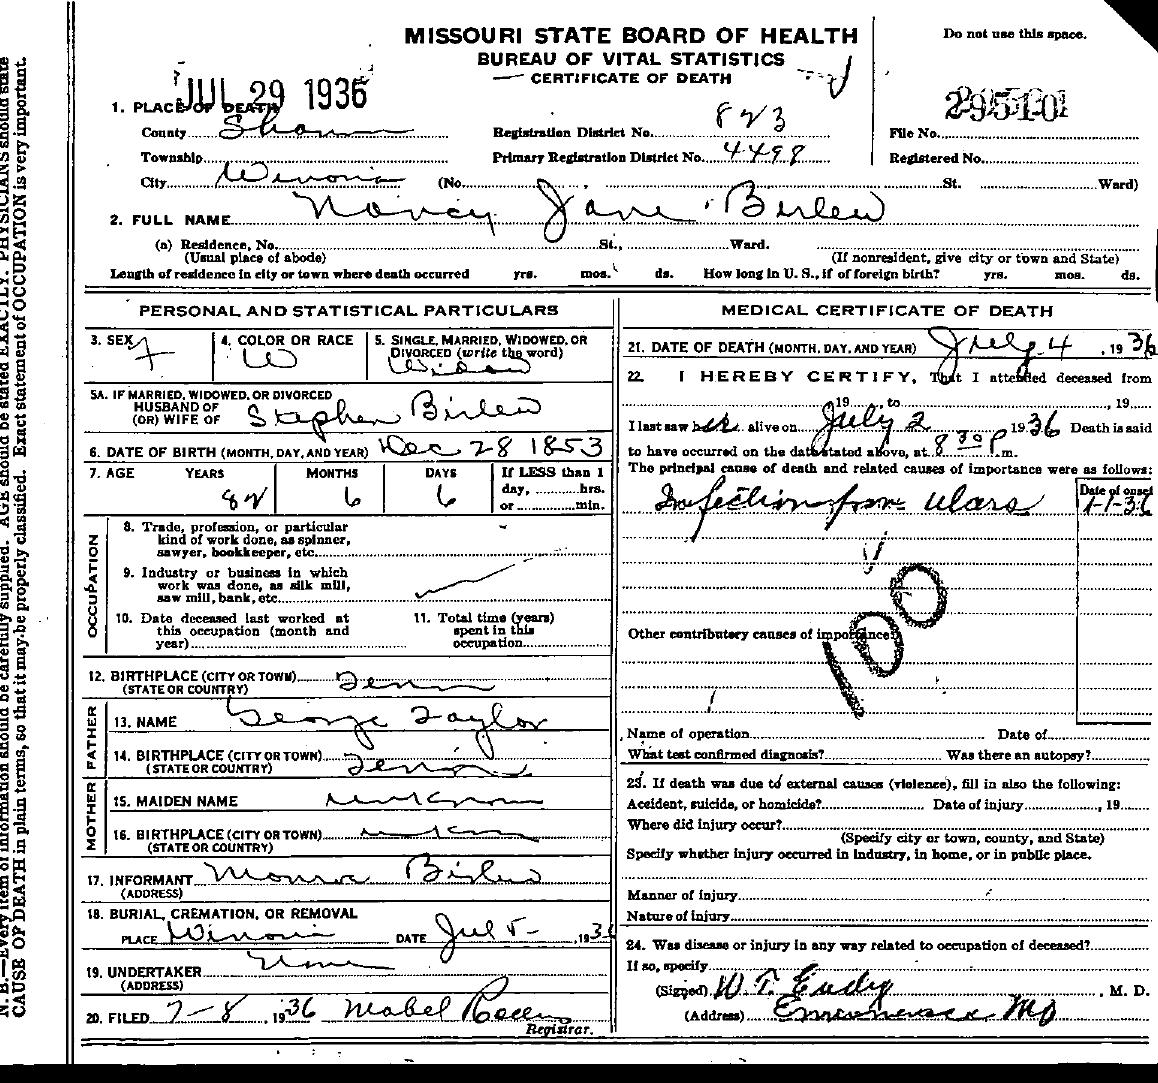 MISSOURI STATE BOARD OF HEALTH
BUREAU OF VITAL STATISTICS
CERTIFICATE OF DEATH
Do not use this space.
JUL 29 1936
29510
1. PLACE OF DEATH
County Shannon Registration District No. 823 File No.
Township Primary Registration District No. 4498 Registered No.
City Winona (No. St. Ward)
2. FULL NAME Nancy Jane Birlew
(a) Residence, No. St., Ward.
(Usual place of abode) (If nonresident, give city or town and State)
Length of residence in city or town where death occurred yrs. mos. ds. How long in U. S., if of foreign birth? yrs. mos. ds.
PERSONAL AND STATISTICAL PARTICULARS
3. SEX F 4. COLOR OR RACE W 5. SINGLE, MARRIED, WIDOWED, OR DIVORCED (write the word) Widow
5A. IF MARRIED, WIDOWED, OR DIVORCED
HUSBAND OF
(OR) WIFE OF Stephen Birlew
6. DATE OF BIRTH (MONTH, DAY, AND YEAR) Dec 28 1853
7. AGE YEARS MONTHS DAYS If LESS than 1
day, hrs.
or min.
82 6 6
OCCUPATION
8. Trade, profession, or particular
kind of work done, as spinner,
sawyer, bookkeeper, etc.
9. Industry or business in which
work was done, as silk mill,
saw mill, bank, etc.
10. Date deceased last worked at
this occupation (month and
year)
11. Total time (years)
spent in this
occupation
12. BIRTHPLACE (CITY OR TOWN) Tenn
(STATE OR COUNTRY)
FATHER
13. NAME George Taylor
14. BIRTHPLACE (CITY OR TOWN) Tenn
(STATE OR COUNTRY)
MOTHER
15. MAIDEN NAME unknown
16. BIRTHPLACE (CITY OR TOWN)
(STATE OR COUNTRY)
17. INFORMANT Monroe Birlew
(ADDRESS)
18. BURIAL, CREMATION, OR REMOVAL
PLACE Winona DATE Jul 5, 1936
19. UNDERTAKER None
(ADDRESS)
20. FILED 7-8, 1936 Mabel
Registrar.
MEDICAL CERTIFICATE OF DEATH
21. DATE OF DEATH (MONTH, DAY, AND YEAR) July 4, 1936
22. I HEREBY CERTIFY, That I attended deceased from
, 19 , to , 19
I last saw her alive on July 2 1936 Death is said
to have occurred on the date stated above, at 8 30 P.m.
The principal cause of death and related causes of importance were as follows:
Date of onset
Infection from ulcers 1-1-36
100
Other contributory causes of importance:
Name of operation Date of
What test confirmed diagnosis? Was there an autopsy?
23. If death was due to external causes (violence), fill in also the following:
Accident, suicide, or homicide? Date of injury , 19
Where did injury occur?
(Specify city or town, county, and State)
Specify whether injury occurred in industry, in home, or in public place.
Manner of injury
Nature of injury
24. Was disease or injury in any way related to occupation of deceased?
If so, specify
(Signed) W. T. Eudy, M. D.
(Address) Eminence Mo
N. B.—Every item of information should be carefully supplied. AGE should be stated EXACTLY. PHYSICIANS should state
CAUSE OF DEATH in plain terms, so that it may be properly classified. Exact statement of OCCUPATION is very important.